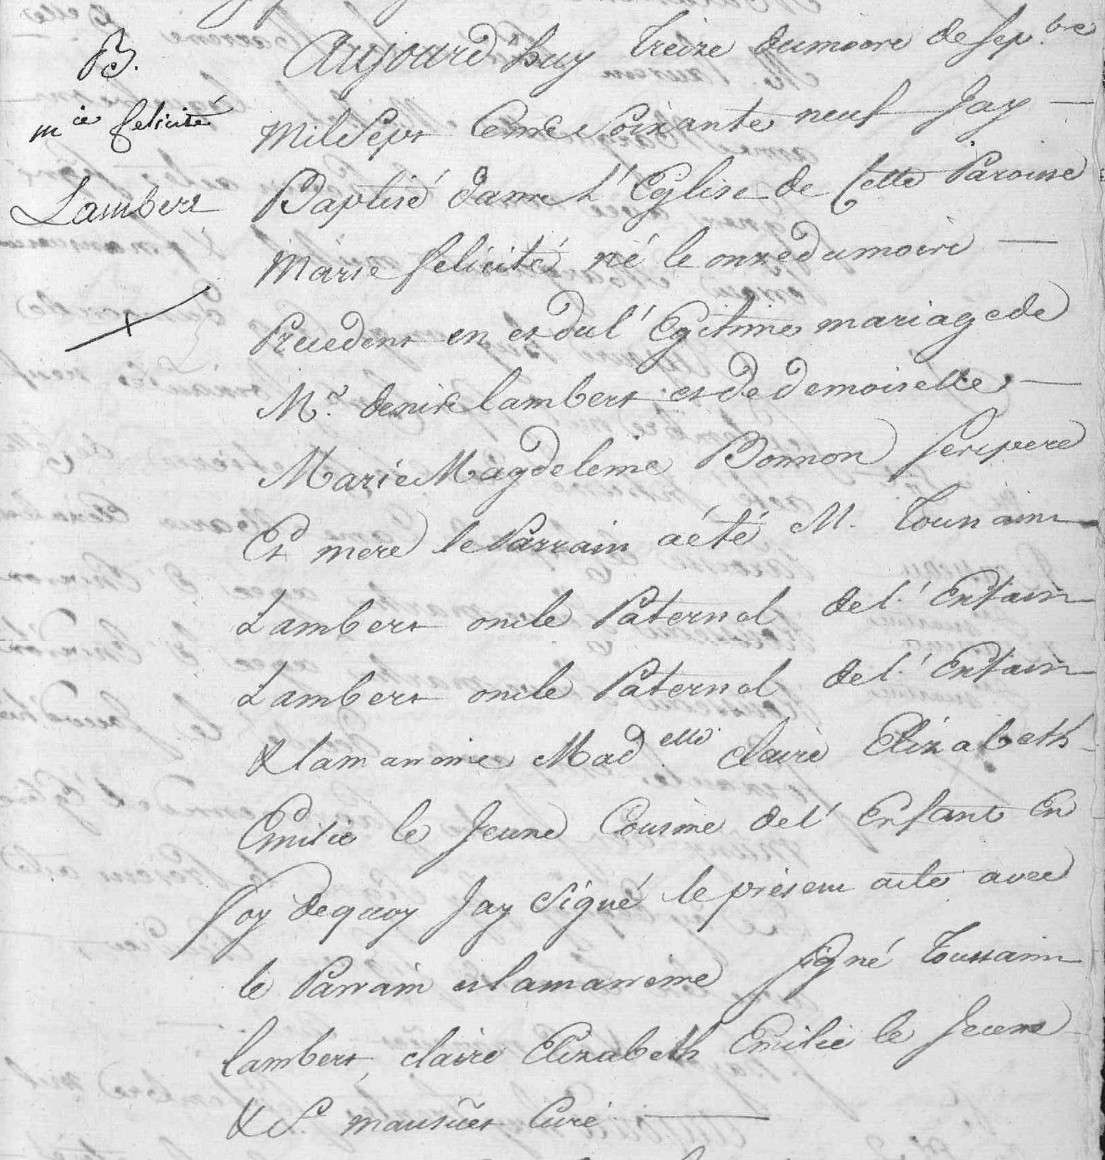 B.
mie felicité
Lambert
Aujourd huy treize dumoire de sepbre
mil sept cents soixante neuf Jay
Baptisé dans L'Eglise de Cette Paroisse
Marie felicité né le onze dumoiri
Precedent en et du l'Egitime mariage de
Mr. denis lambert et de demoiselle
Marie Magdeleine Bonnon ses pere
Et mere le Parrain aété M. Toussain
Lambert oncle Paternel del'Enfain
Lambert oncle Paternel del'Enfain
& lamareine Madelle claire Elizabeth
Emilie le Jeune Cousine del'Enfant En
foy dequoy Jay signé le présent acte avec
le Parrain et lamareine signé Toussain
lambert, claire Elizabeth Emilie le Jeune
& S. Curé